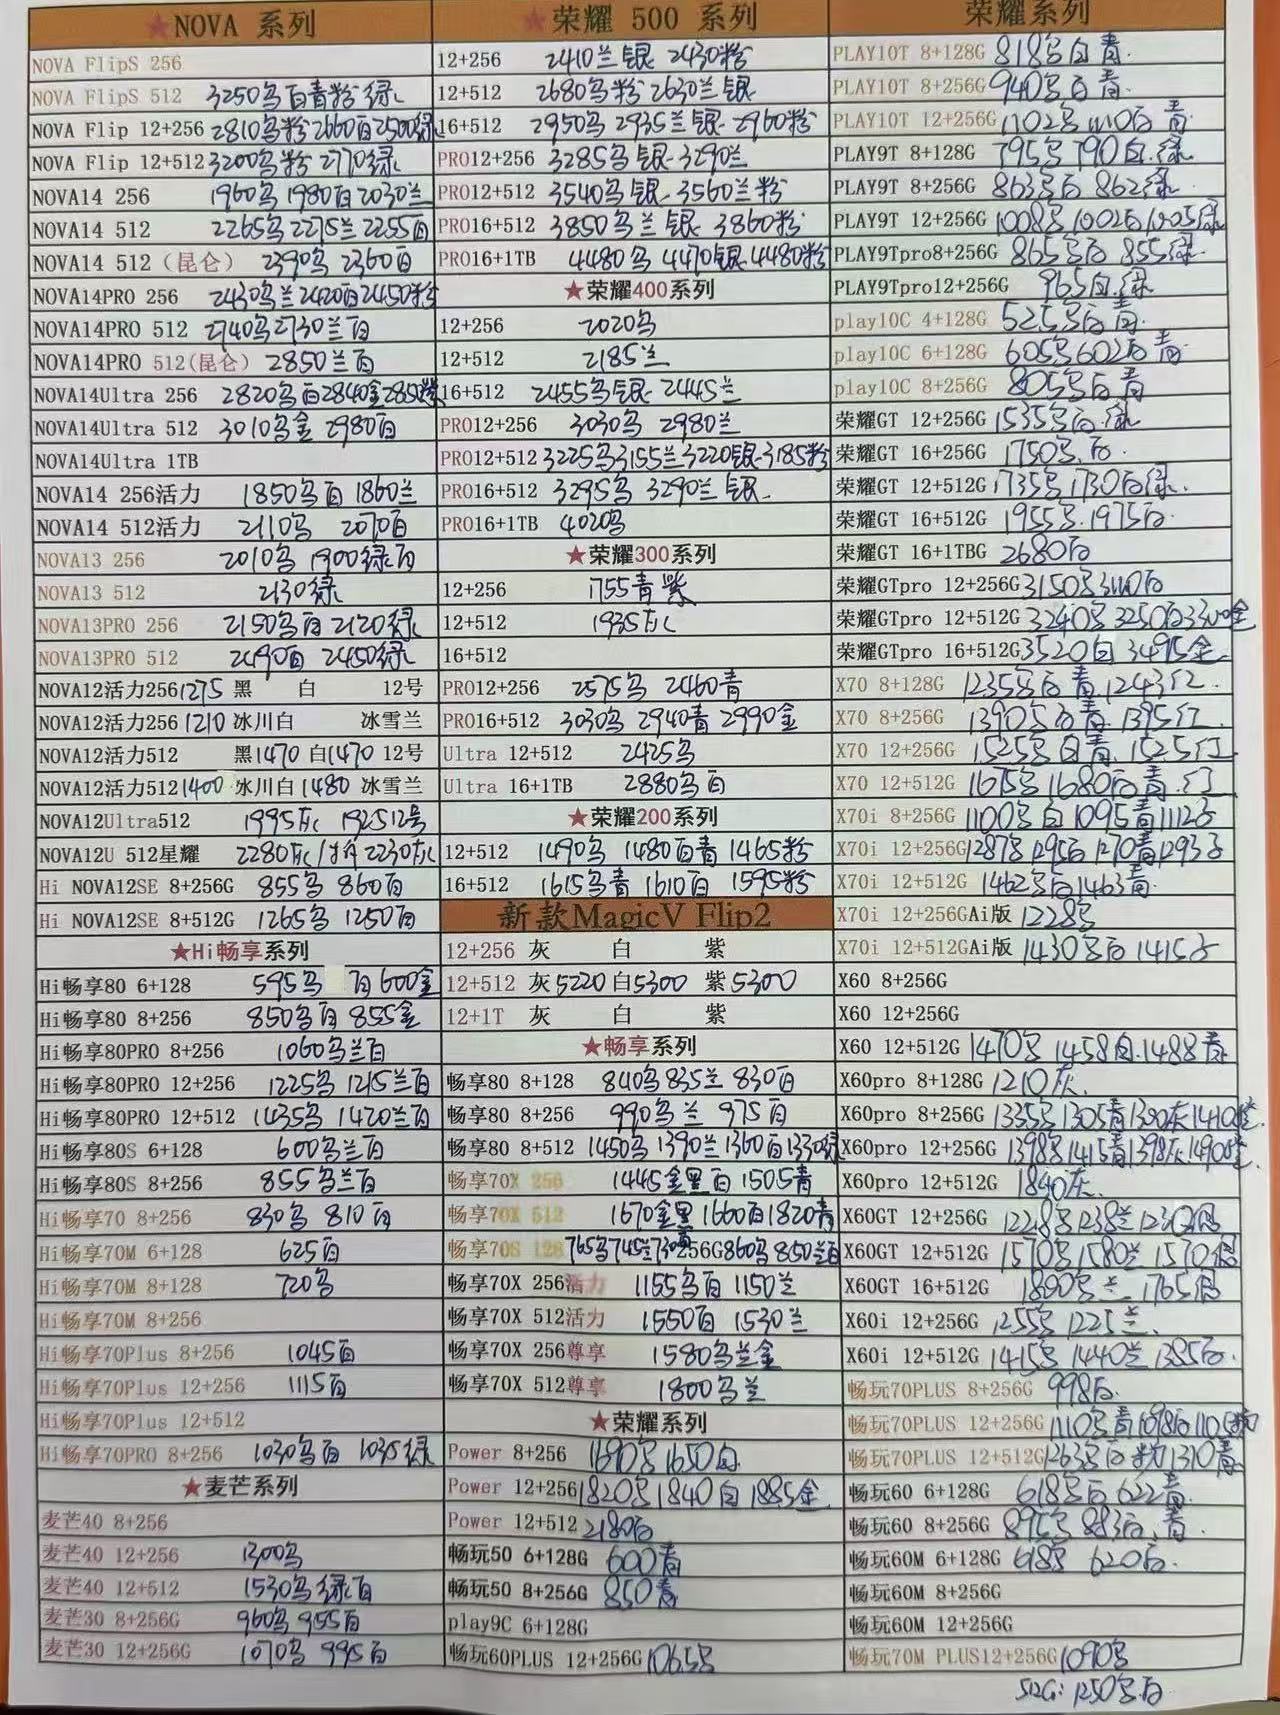 ★NOVA 系列
NOVA FlipS 256
NOVA FlipS 512 3250乌白青粉绿
NOVA Flip 12+256 2810乌粉2660白2500绿
NOVA Flip 12+512 3200乌粉 2770绿
NOVA14 256 1960乌 1980白2030兰
NOVA14 512 2265乌2275兰2255白
NOVA14 512（昆仑） 2390乌 2360白
NOVA14PRO 256 2430乌兰2420白2450粉
NOVA14PRO 512 2740乌2730兰白
NOVA14PRO 512(昆仑) 2850兰白
NOVA14Ultra 256 2820乌白2840金2850粉
NOVA14Ultra 512 3010乌金 2980白
NOVA14Ultra 1TB
NOVA14 256活力 1850乌白 1860兰
NOVA14 512活力 2110乌 2070白
NOVA13 256 2010乌 1900绿白
NOVA13 512 2130绿
NOVA13PRO 256 2150乌白2120绿
NOVA13PRO 512 2490白 2450绿
NOVA12活力256 1275 黑 白 12号
NOVA12活力256 1210 冰川白 冰雪兰
NOVA12活力512 黑1470 白1470 12号
NOVA12活力512 1400 冰川白 1480 冰雪兰
NOVA12Ultra512 1995灰 1925 12号
NOVA12U 512星耀 2280灰/ 2230灰
Hi NOVA12SE 8+256G 855乌 860白
Hi NOVA12SE 8+512G 1265乌 1250白
★Hi畅享系列
Hi畅享80 6+128 595乌 白600金
Hi畅享80 8+256 850乌白 855金
Hi畅享80PRO 8+256 1060乌兰白
Hi畅享80PRO 12+256 1225乌 1215兰白
Hi畅享80PRO 12+512 1435乌 1420兰白
Hi畅享80S 6+128 600乌兰白
Hi畅享80S 8+256 855乌兰白
Hi畅享70 8+256 830乌 810白
Hi畅享70M 6+128 625白
Hi畅享70M 8+128 720乌
Hi畅享70M 8+256
Hi畅享70Plus 8+256 1045白
Hi畅享70Plus 12+256 1115白
Hi畅享70Plus 12+512
Hi畅享70PRO 8+256 1030乌白 1035绿
★麦芒系列
麦芒40 8+256
麦芒40 12+256 1300乌
麦芒40 12+512 1530乌绿白
麦芒30 8+256G 960乌 955白
麦芒30 12+256G 1070乌 995白
★荣耀 500 系列
12+256 2410兰银 2430粉
12+512 2680乌粉 2630兰银
16+512 2950乌 2935兰银 2960粉
PRO12+256 3285乌银 3290兰
PRO12+512 3540乌银 3560兰粉
PRO16+512 3850乌兰银 3860粉
PRO16+1TB 4480乌 4470银 4480粉
★荣耀400系列
12+256 2020乌
12+512 2185兰
16+512 2455乌银 2445兰
PRO12+256 3030乌 2980兰
PRO12+512 3225乌3155兰3220银3185粉
PRO16+512 3295乌 3290兰银
PRO16+1TB 4020乌
★荣耀300系列
12+256 1755青紫
12+512 1935灰
16+512
PRO12+256 2575乌 2460青
PRO16+512 3030乌 2940青 2990金
Ultra 12+512 2425乌
Ultra 16+1TB 2880乌白
★荣耀200系列
12+512 1490乌 1480白青 1465粉
16+512 1615乌青 1610白 1595粉
新款MagicV Flip2
12+256 灰 白 紫
12+512 灰5220 白5300 紫5300
12+1T 灰 白 紫
★畅享系列
畅享80 8+128 840乌835兰 830白
畅享80 8+256 990乌兰 975白
畅享80 8+512 1450乌1390兰1360白1330绿
畅享70X 256 1445金黑白 1505青
畅享70X 512 1670金黑 1660白1820青
畅享70S 128 765乌745兰730白256G860乌850兰白
畅享70X 256活力 1155乌白 1150兰
畅享70X 512活力 1550白 1530兰
畅享70X 256尊享 1580乌兰金
畅享70X 512尊享 1800乌兰
★荣耀系列
Power 8+256 1690乌1650白
Power 12+256 1820乌1840白1885金
Power 12+512 2180白
畅玩50 6+128G 600青
畅玩50 8+256G 850青
play9C 6+128G
畅玩60PLUS 12+256G 1065乌
荣耀系列
PLAY10T 8+128G 818乌白青
PLAY10T 8+256G 940乌白青
PLAY10T 12+256G 1102乌1110白青
PLAY9T 8+128G 795乌790白绿
PLAY9T 8+256G 863乌白 862绿
PLAY9T 12+256G 1008乌1002白1005绿
PLAY9Tpro8+256G 865乌白 855绿
PLAY9Tpro12+256G 965白绿
play10C 4+128G 525乌白青
play10C 6+128G 605乌602白青
play10C 8+256G 805乌白青
荣耀GT 12+256G 1535乌白绿
荣耀GT 16+256G 1750乌白
荣耀GT 12+512G 1735乌1730白绿
荣耀GT 16+512G 1955乌1975白
荣耀GT 16+1TBG 2680白
荣耀GTpro 12+256G 3150乌3110白
荣耀GTpro 12+512G 3240乌3250白3300金
荣耀GTpro 16+512G 3520白3495金
X70 8+128G 1235乌白青1243红
X70 8+256G 1390乌白青1395红
X70 12+256G 1525乌白青1525红
X70 12+512G 1675乌1680白青红
X70i 8+256G 1100乌白1095青1112子
X70i 12+256G 1287乌1295白1270青1293子
X70i 12+512G 1462乌白1463青
X70i 12+256GAi版 1228乌
X70i 12+512GAi版 1430乌白1415子
X60 8+256G
X60 12+256G
X60 12+512G 1470乌 1458白1488青
X60pro 8+128G 1210灰
X60pro 8+256G 1335乌1305青1300灰1410
X60pro 12+256G 1398乌1415青1398灰1490
X60pro 12+512G 1840灰
X60GT 12+256G 1228乌1238兰1230银
X60GT 12+512G 1570乌1580兰1570银
X60GT 16+512G 1800乌兰 1765银
X60i 12+256G 1255乌1225兰
X60i 12+512G 1415乌1440兰1385白
畅玩70PLUS 8+256G 998白
畅玩70PLUS 12+256G 1110乌青1098白1105粉
畅玩70PLUS 12+512G 1263乌白粉1310青
畅玩60 6+128G 618乌白622青
畅玩60 8+256G 895乌883白青
畅玩60M 6+128G 618乌 620白
畅玩60M 8+256G
畅玩60M 12+256G
畅玩70M PLUS12+256G 1090乌
512G: 1250乌白